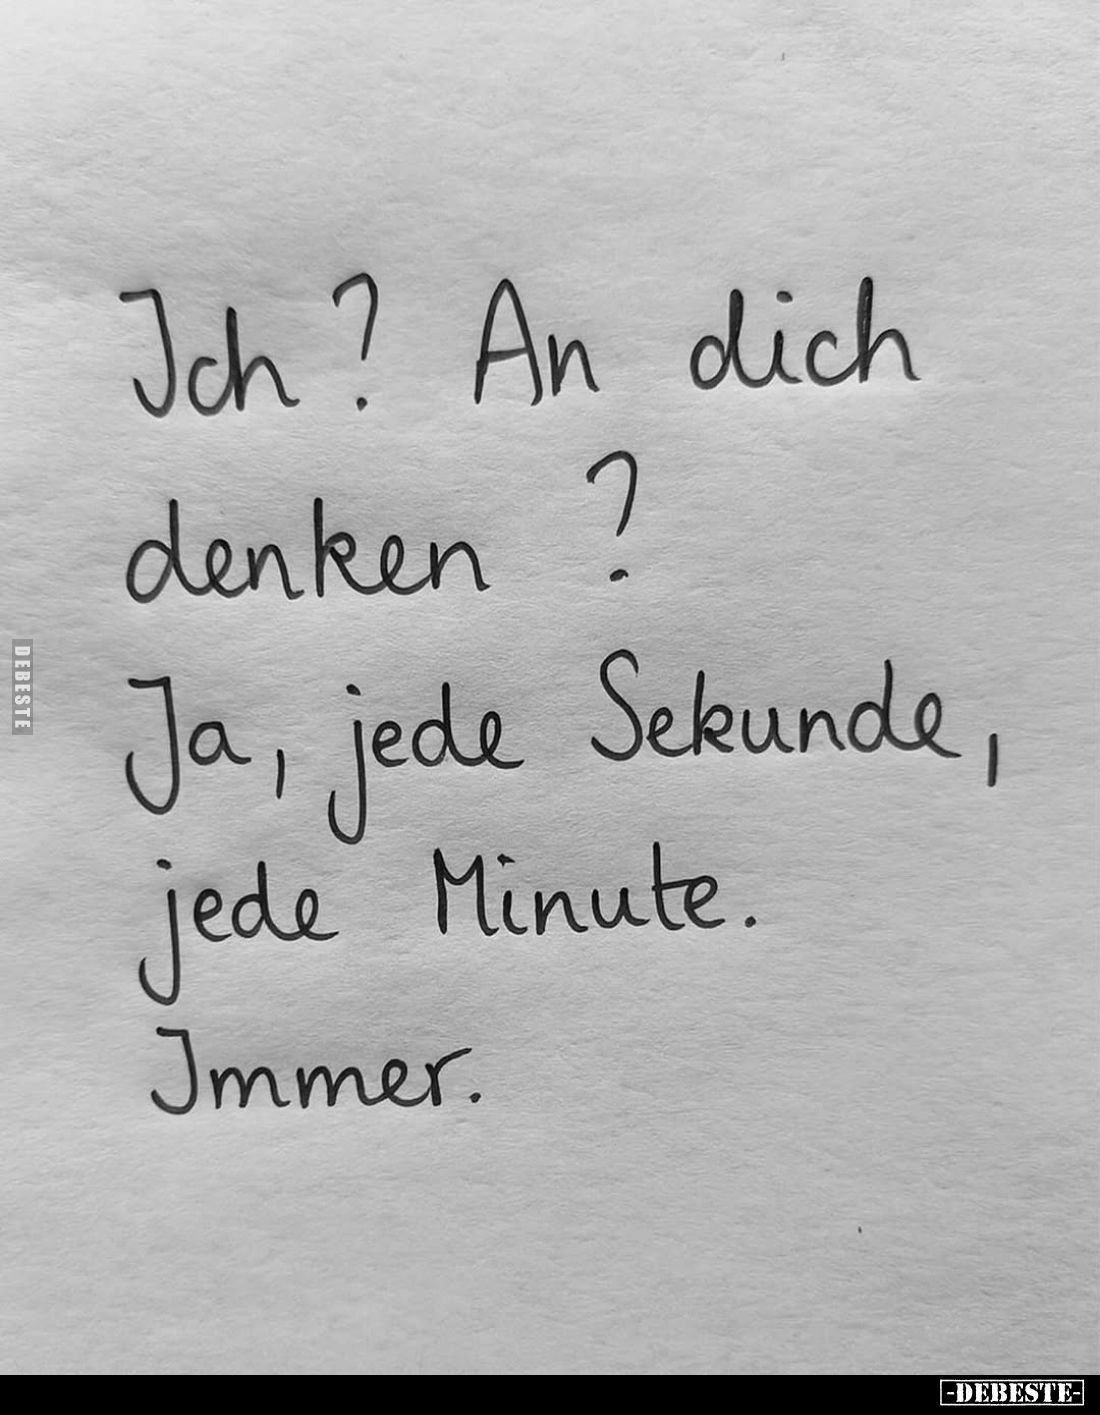 Ich? An dich
denken?
Ja, jede Sekunde,
jede Minute.
Immer.
DEBESTE
-DEBESTE-